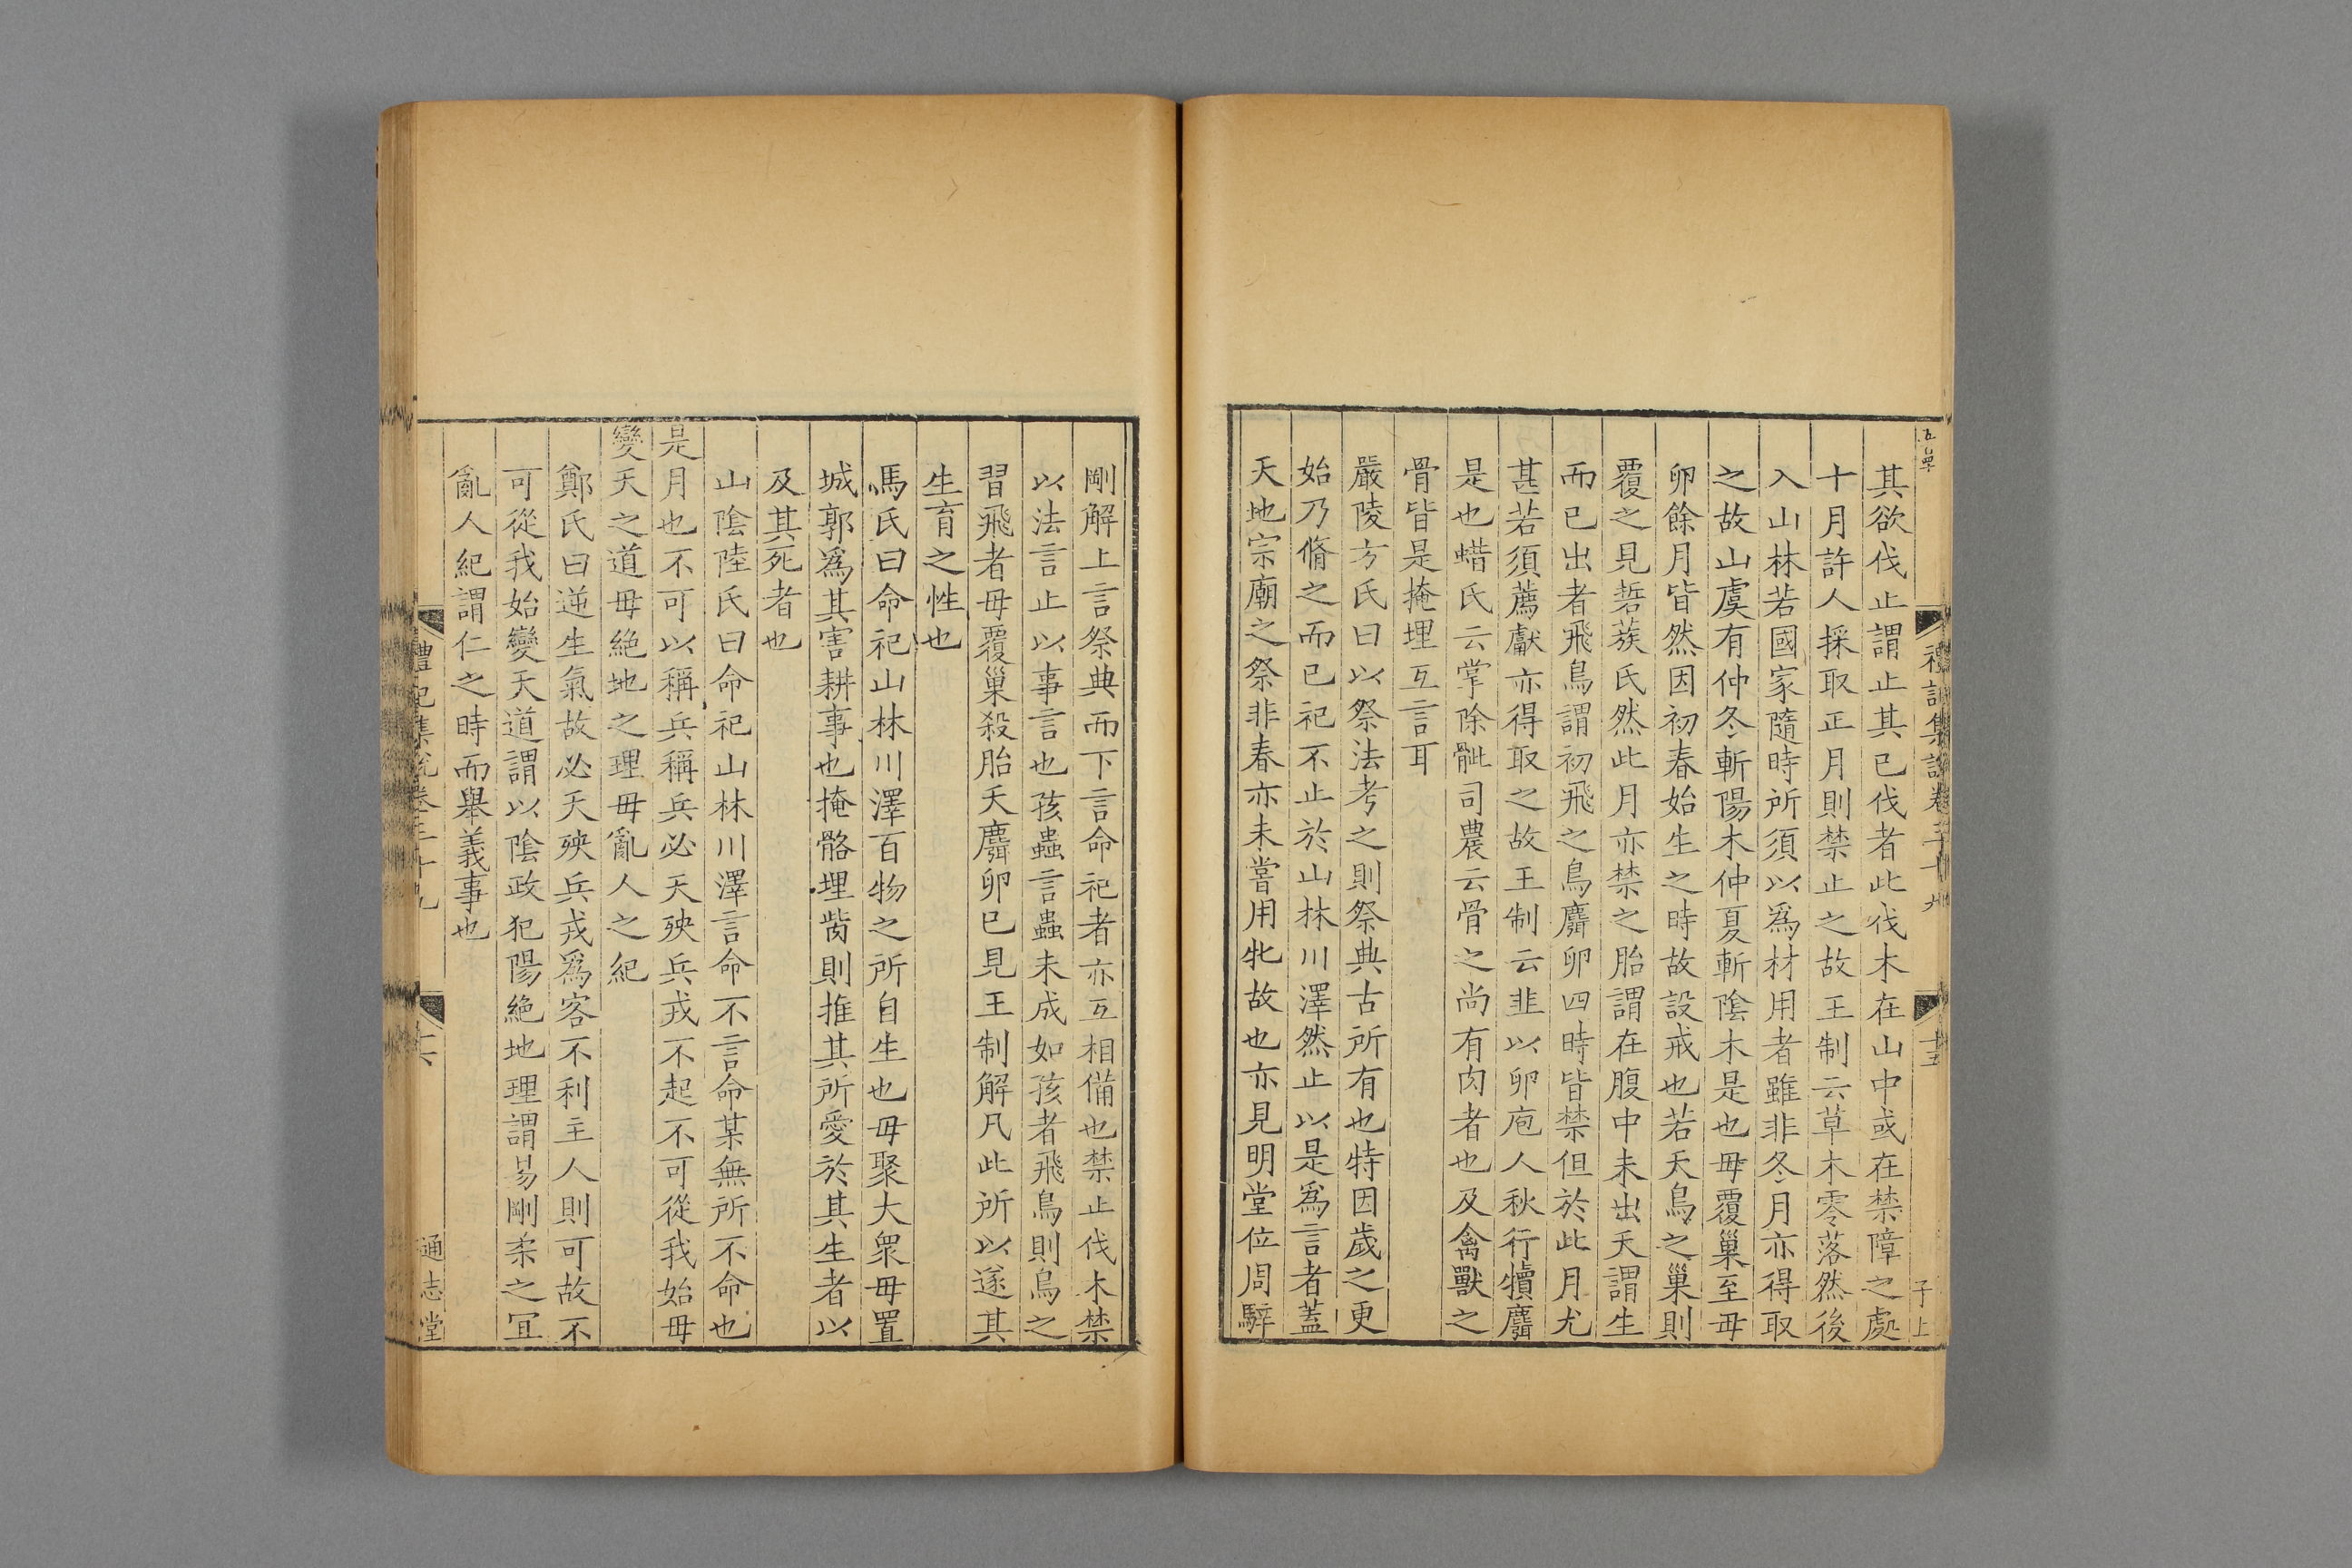 其欲伐止謂止其已伐者此伐木在山中或在禁障之處
十月許人採取正月則禁止之故王制云草木零落然後
入山林若國家隨時所須以爲材用者雖非冬月亦得取
之故山虞有仲冬斬陽木仲夏斬陰木是也毋覆巢至毋
卵餘月皆然因初春始生之時故設戒也若夭鳥之巢則
覆之見硩蔟氏然此月亦禁之胎謂在腹中未出夭謂生
而已出者飛鳥謂初飛之鳥麛卵四時皆禁但於此月尤
甚若須薦獻亦得取之故王制云韭以卵庖人秋行犢麛
是也蜡氏云掌除骴司農云骨之尚有肉者也及禽獸之
骨皆是掩埋互言耳
嚴陵方氏曰以祭法考之則祭典古所有也特因歲之更
始乃脩之而已祀不止於山林川澤然止以是爲言者蓋
天地宗廟之祭非春亦未嘗用牝故也亦見明堂位周騂
剛解上言祭典而下言命祀者亦互相備也禁止伐木禁
以法言止以事言也孩蟲言蟲未成如孩者飛鳥則鳥之
習飛者毋覆巢殺胎夭麛卵已見王制解凡此所以遂其
生育之性也
馬氏曰命祀山林川澤百物之所自生也毋聚大衆毋置
城郭爲其害耕事也掩骼埋胔則推其所愛於其生者以
及其死者也
山陰陸氏曰命祀山林川澤言命不言命某無所不命也
是月也不可以稱兵稱兵必天殃兵戎不起不可從我始毋
變天之道毋絶地之理毋亂人之紀
鄭氏曰逆生氣故必天殃兵戎爲客不利主人則可故不
可從我始變天道謂以陰政犯陽絶地理謂易剛柔之宜
亂人紀謂仁之時而舉義事也
禮記集說卷三十九
十六
通志堂